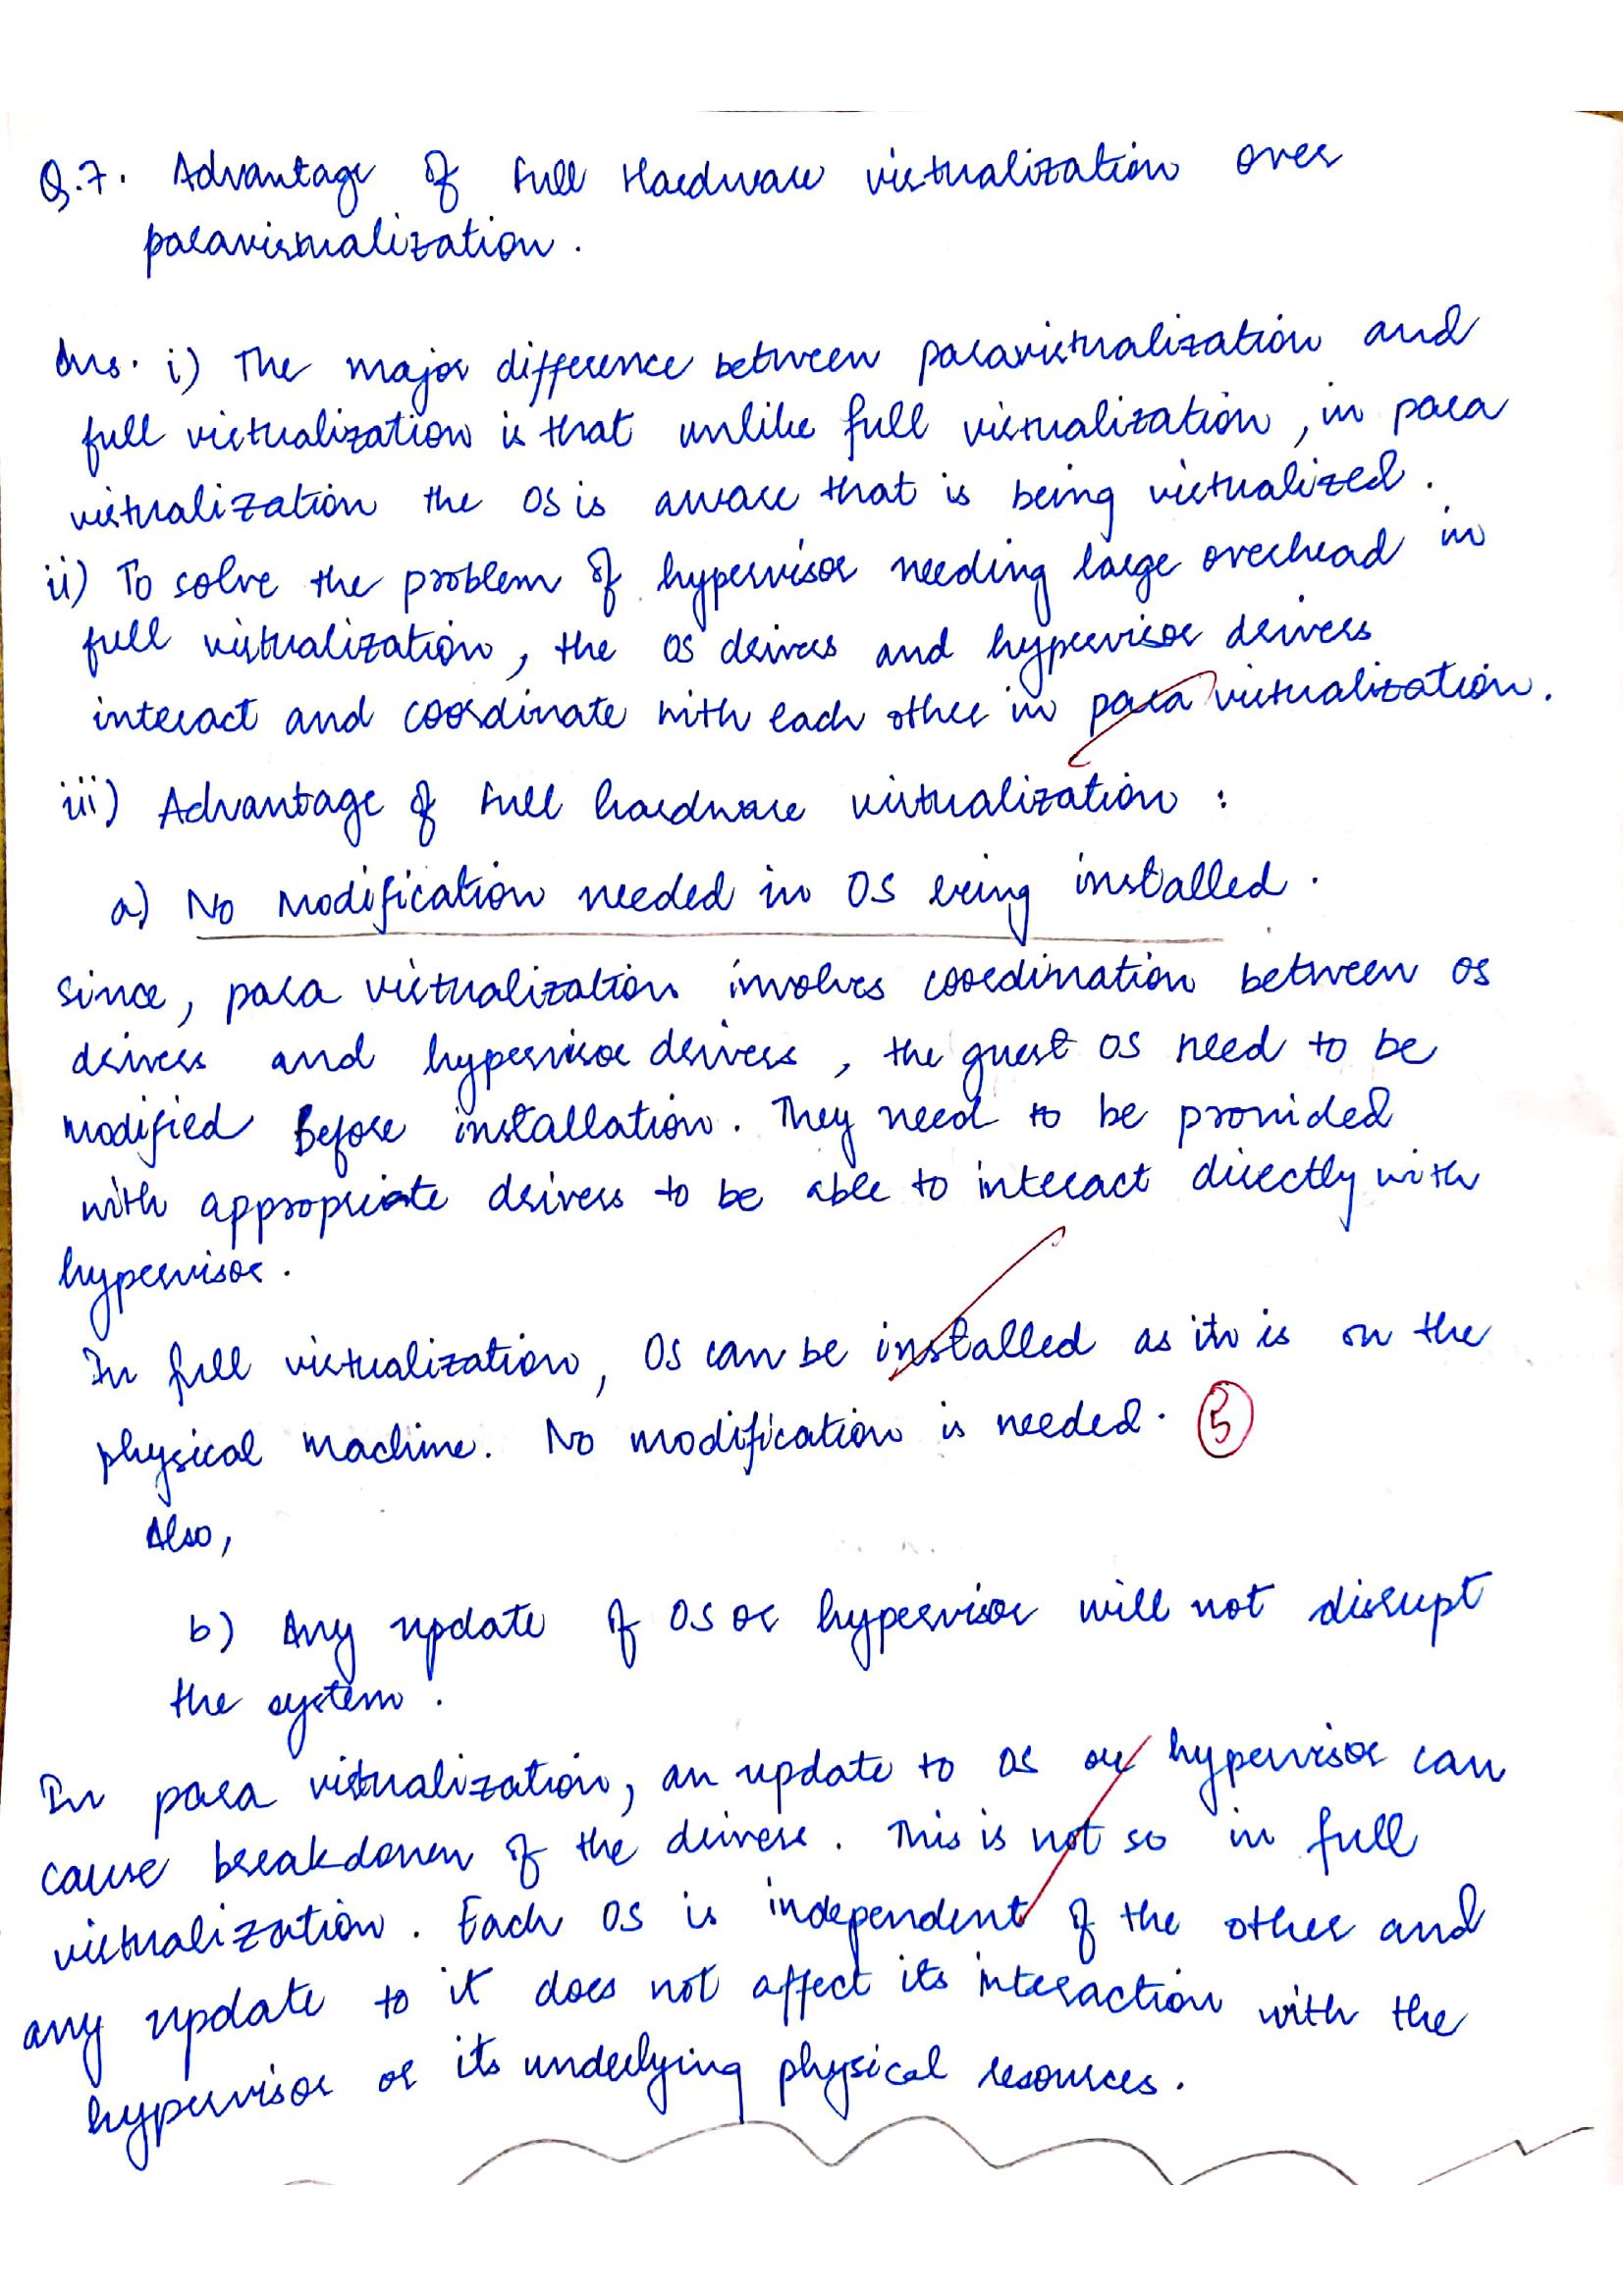 Q.7. Advantage of Full Hardware virtualization over
paravirtualization.
Ans. i) The major difference between paravirtualization and
full virtualization is that unlike full virtualization, in para
virtualization the OS is aware that is being virtualized.
ii) To solve the problem of hypervisor needing large overhead in
full virtualization, the OS drivers and hypervisor drivers
interact and coordinate with each other in para virtualization.
iii) Advantage of Full hardware virtualization :
a) No Modification needed in OS being installed.
Since, para virtualization involves coordination between OS
drivers and hypervisor drivers, the guest OS need to be
modified Before installation. They need to be provided
with appropriate drivers to be able to interact directly with
hypervisor.
In full virtualization, OS can be installed as it is on the
physical machine. No modification is needed. 5
Also,
b) Any update of OS or hypervisor will not disrupt
the system.
In para virtualization, an update to OS or hypervisor can
cause breakdown of the drivers. This is not so in full
virtualization. Each OS is independent of the other and
any update to it does not affect its interaction with the
hypervisor or its underlying physical resources.